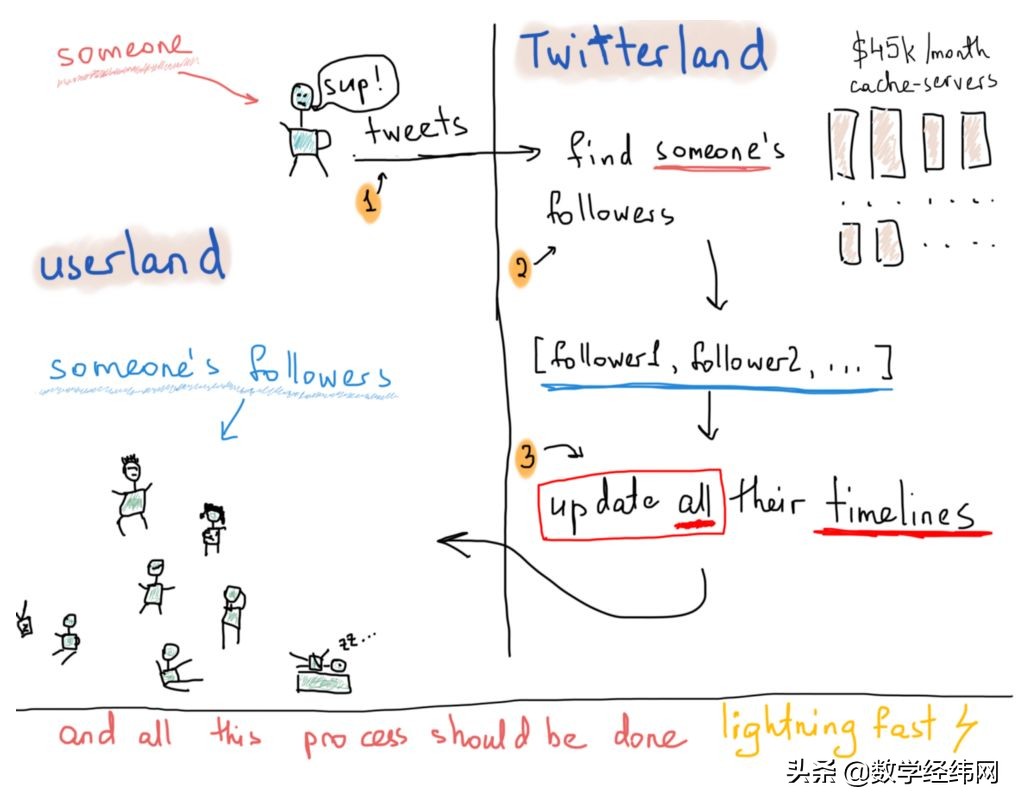 someone
sup!
tweets
1
userland
someone's followers
zz...
Twitterland
$45k/month
cache-servers
find someone's
followers
2
[follower1, follower2, ...]
3
update all their timelines
and all this process should be done lightning fast
头条 @数学经纬网